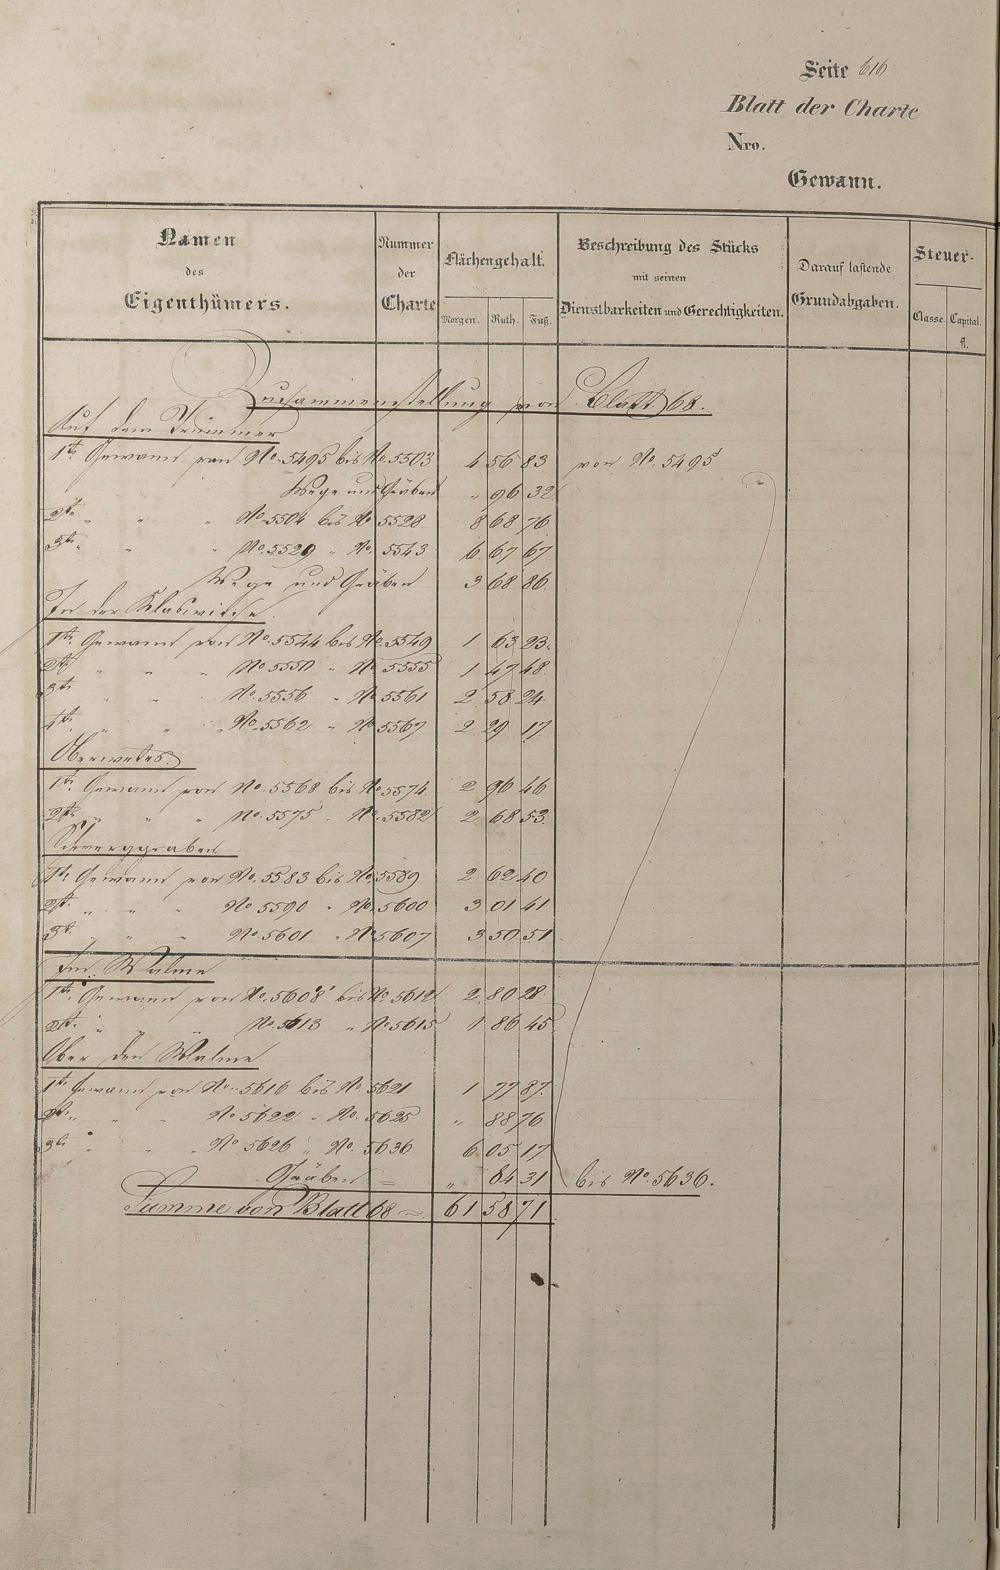 Seite 616
Blatt der Charte
Nro.
Gewann.
Namen des Eigenthümers.
Nummer der Charte
Flächengehalt.
Morgen. Ruth. Fuß.
Beschreibung des Stücks mit seinen Dienstbarkeiten und Gerechtigkeiten.
Darauf lastende Grundabgaben.
Steuer-
Classe. Capital.
fl.
Zusammenstellung von Blatt 68.
Auf dem Trümmer
1te Gewann von No. 5495 bis No. 5503 4 56 83 von No. 5495
Wege und Gräben " 96 32
2te " " " No. 5504 bis No. 5528 8 68 76
3te " " " No. 5529 " No. 5543 6 67 67
Wege und Gräben 3 68 86
In der
1te Gewann von No. 5544 bis No. 5549 1 63 23
2te " " " No. 5550 " No. 5555 1 47 48
3te " " No. 5556 " No. 5561 2 58 24
4te " " " No. 5562 " No. 5567 2 29 17
1te Gewann von No. 5568 bis No. 5574 2 96 46
2te " " " No. 5575 " No. 5582 2 68 53
1te Gewann von No. 5583 bis No. 5589 2 62 40
2te " " " No. 5590 " No. 5600 3 01 41
3te " " No. 5601 " No. 5607 3 50 51
Im Walme
1te Gewann von No. 5608 bis No. 5612 2 80 28
2te " " " No. 5613 " No. 5615 1 86 45
Ober den Walme
1te Gewann von No. 5616 bis No. 5621 1 77 87
2te " " " No. 5622 " No. 5625 " 88 76
3te " " " No. 5626 " No. 5636 6 05 17
Gräben = " 84 31 bis No. 5636.
Summe von Blatt 68 = 61 58 71